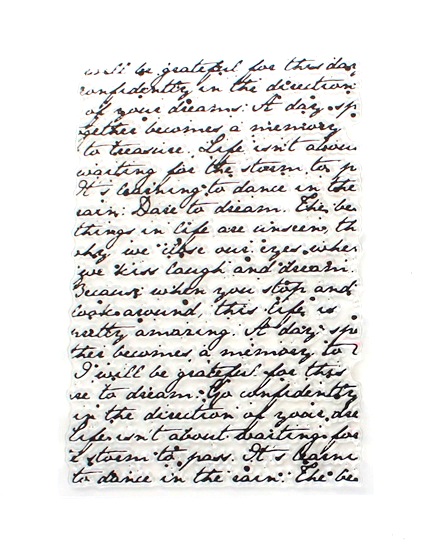 will be grateful for this day
confidently in the direction
of your dreams. A day sp
gether becomes a memory
to treasure. Life isn't abou
waiting for the storm to p
It's learning to dance in the
rain. Dare to dream. The be
things in life are unseen, th
why we close our eyes when
we kiss laugh and dream.
Because when you stop and
look around, this life is
retty amazing. A day sp
ther becomes a memory to
I will be grateful for this
re to dream. Go confidently
in the direction of your dre
Life isn't about waiting for
e storm to pass. It's learni
to dance in the rain. The be